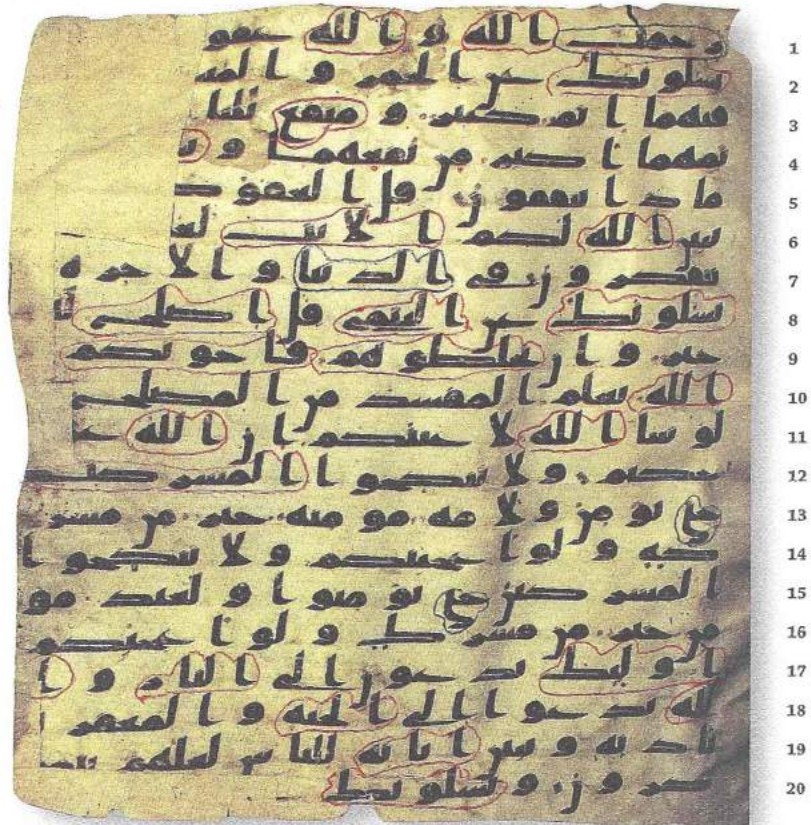 رحمت الله و الله غفو
يسلونك عن الخمر و الميسر
فيهما اثم كبير و منفع للنا
ثمهما اكبر من نفعهما و
ما ذا ينفقون قل العفو كذ
يبين الله لكم الايت لعلـ
تتفكرون في الدنيا و الاخرة
يسلونك عن اليتمى قل اصلح
خير و ان تخلطوهم فاخونكم
الله يعلم المفسد من المصلح
لو شا الله لاعنتكم ان الله عـ
حكيم و لا تنكحوا المشركت
حتى يومن و لامة مومنة خير من مشر
كة و لو اعجبتكم و لا تنكحوا
المشركين حتى يومنوا و لعبد مو
من خير من مشرك و لو اعجبكم
اوليك يدعون الى النار و ا
لله يدعوا الى الجنة و المغفر
ة باذنه و يبين اياته للناس لعلهم يتذ
كرون و يسلونك
1
2
3
4
5
6
7
8
9
10
11
12
13
14
15
16
17
18
19
20